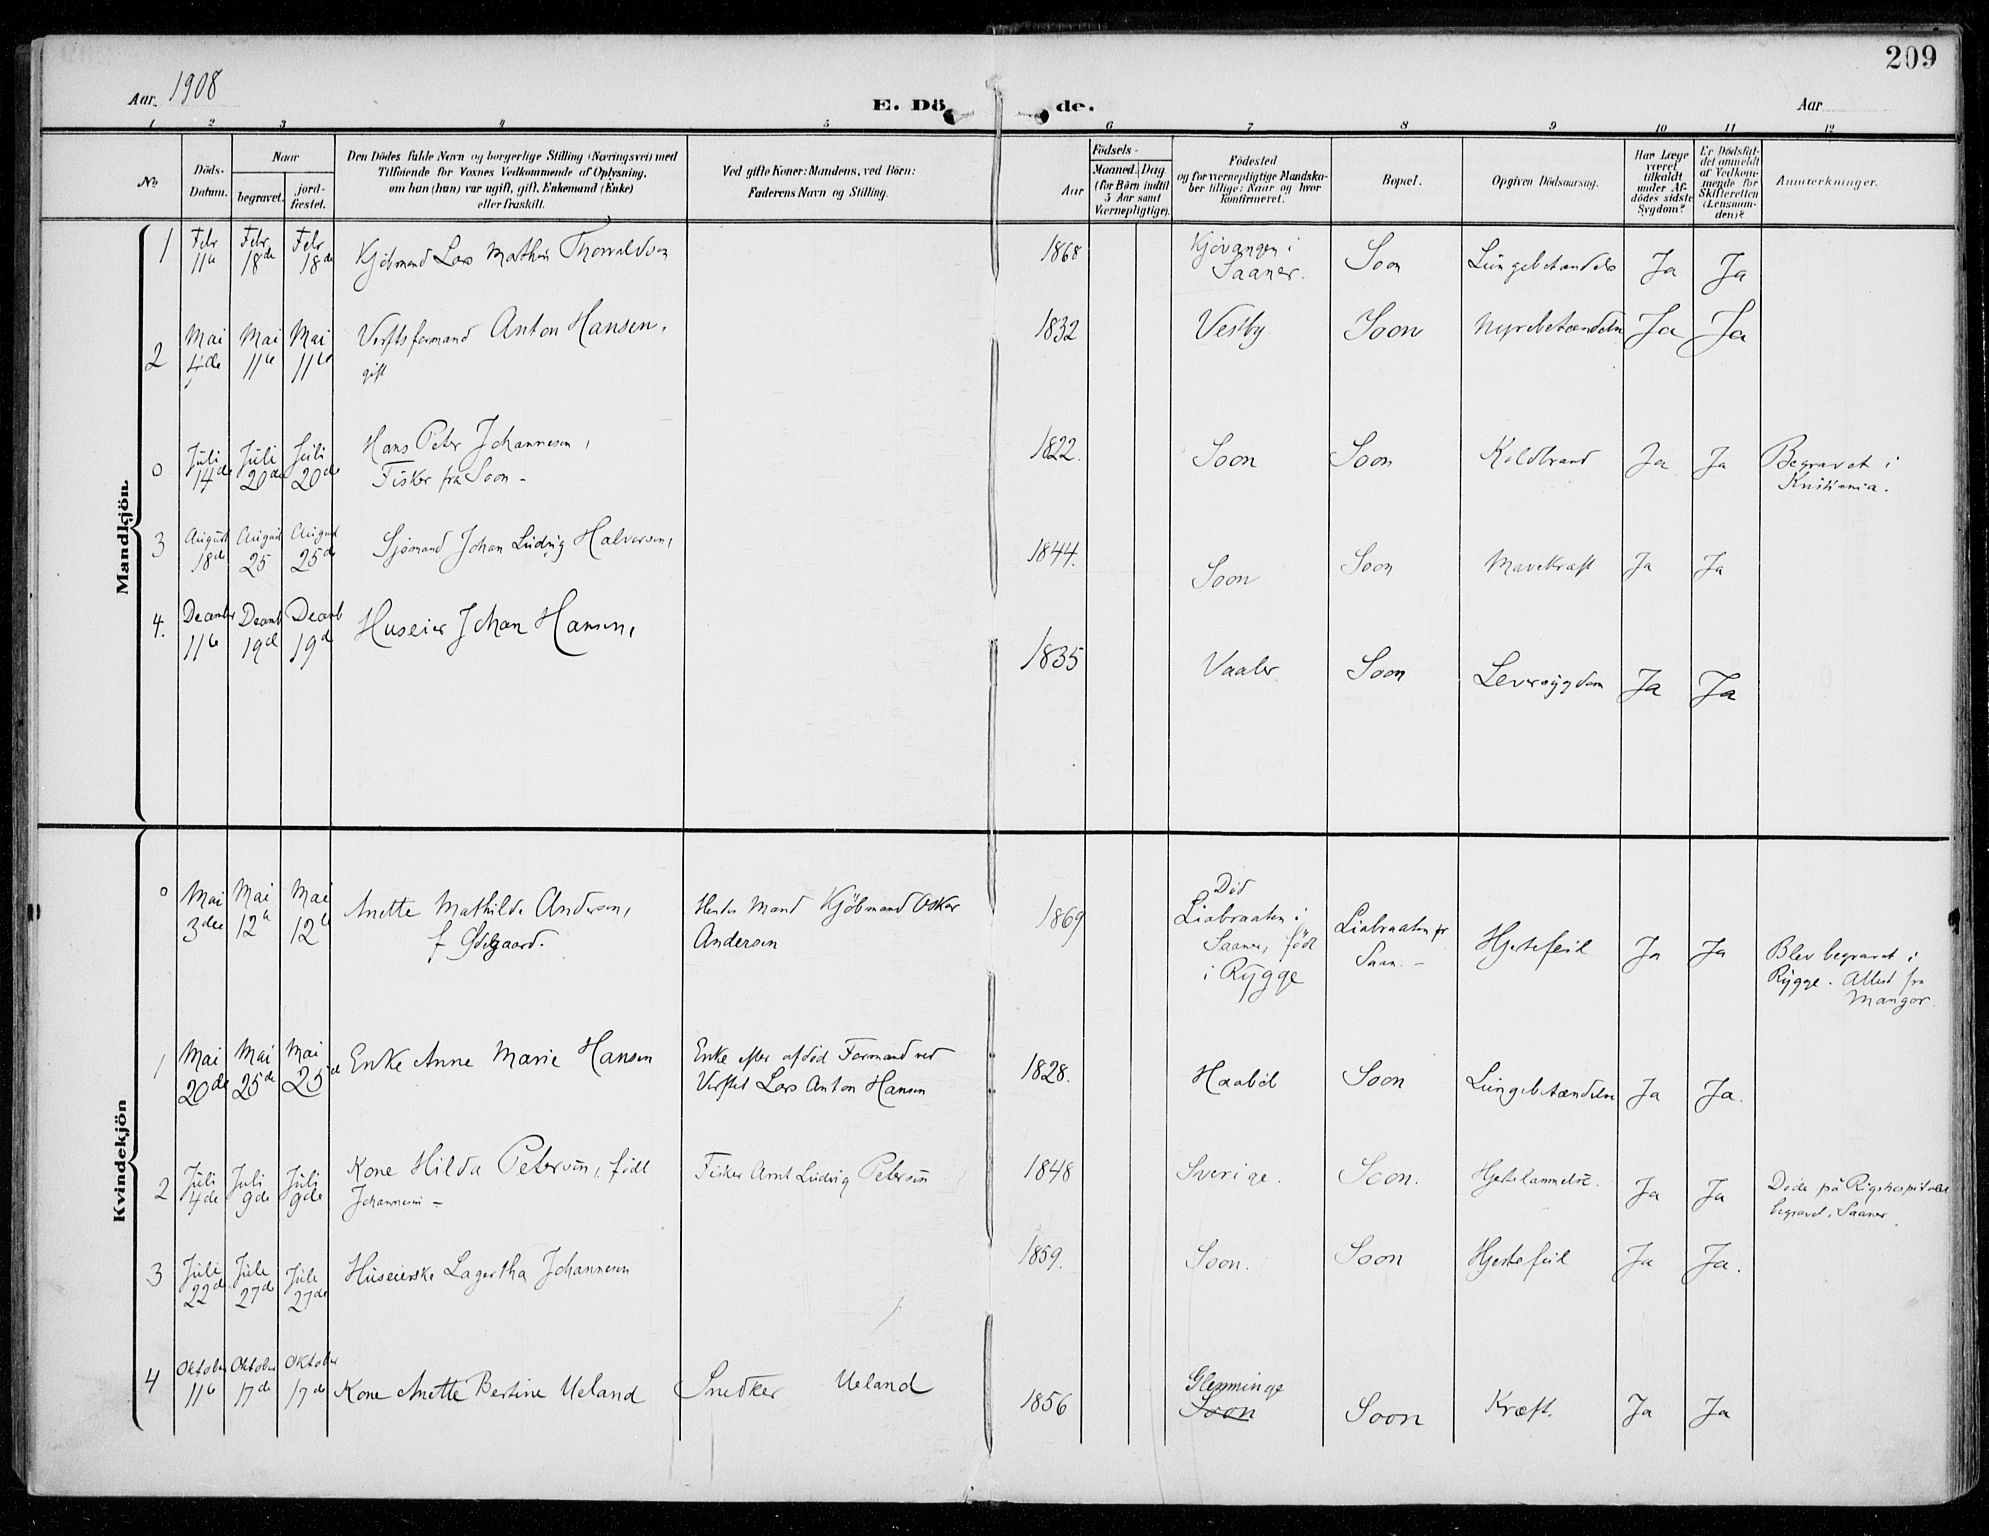 209
Aar. 1908
E. Dö de.
Aar
1 2 3 4 5 6 7 8 9 10 11 12
No
Döds-
Datum.
Naar
begravet.
jord-
fæstet.
Den Dödes fulde Navn og borgerlige Stilling (Næringsvei) med
Tilföiende for Voxnes Vedkommende af Oplysning,
om han (hun) var ugift, gift, Enkemand (Enke)
eller fraskilt.
Ved gifte Koner: Mandens, ved Börn:
Faderens Navn og Stilling.
Födsels-
Aar
Maaned. Dag
(for Börn indtil
5 Aar samt
Værnepligtige).
Födested
og for værnepligtige Mandska-
ber tillige: Naar og hvor
konfirmeret.
Bopæl.
Opgiven Dödsaarsag.
Har Læge
været
tilkaldt
under Af-
dödes sidste
Sygdom?
Er Dödsfal-
det anmeldt
af Vedkom-
mende for
Skifteretten
(Lensman-
den)?
Anmerkninger.
Mandkjön.
1 Febr 11te Febr 18de Febr 18de Kjöbmand Lars Mathias Thorvaldsen 1868 Kjövangen i Saaner. Soon Lungebetændelse Ja Ja
2 Mai 4de Mai 11te Mai 11te Verftsformand Anton Hansen, 1832 Vestby. Soon Nyrebetændelse Ja Ja
gift
0 Juli 14de Juli 20de Juli 20de Hans Peter Johannesen, 1822. Soon Soon Koldbrand Ja Ja Begravet i
Fisker fra Soon - Kristiania.
3 August 18de August 25 August 25de Sjömand Johan Ludvig Halvorsen, 1844. Soon Soon Mavekræft Ja Ja
4. December 11te Decemb 19de Decemb 19de Huseier Johan Hansen, 1835 Vaaler Soon Leversygdom Ja Ja
Kvindekjön
0 Mai 3die Mai 12te Mai 12te Anette Mathilde Andersen, Hendes Mand Kjöbmand Oskar 1869 Död
f. Ødegaard. Andersen Liabraaten i
Saaner, född
i Rygge
Liabraaten pr
Saan. -
Hjertefeil Ja Ja Blev begravet i
Rygge. Attest fra
Mangor
1 Mai 20de Mai 25de Mai 25de Enke Anne Marie Hansen Enke efter afdöd Formand ved 1828. Haabøl Soon Lungebetændelse Ja Ja.
Verftet Lars Anton Hansen
2 Juli 4de Juli 9de Juli 9de Kone Hilda Petersen, född Fisker Arnt Ludvig Petersen 1848 Sverige. Soon. Hjertelammelse. Ja Ja Döde på Rigshospitalet
Johannesen - begravet i Saaner.
3 Juli 22de Juli 27de Juli 27de Huseierske Lagertha Johannesen 1859. Soon. Soon Hjertefeil Ja Ja.
4 Oktober 11te Oktober 17de Oktober 17de Kone Anette Bertine Ueland Snedker Ueland 1856 Glemminge
Soon Soon Kræft. Ja Ja